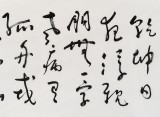 乾坤日
夜浮親
朋無一字
老病有
孤舟戎